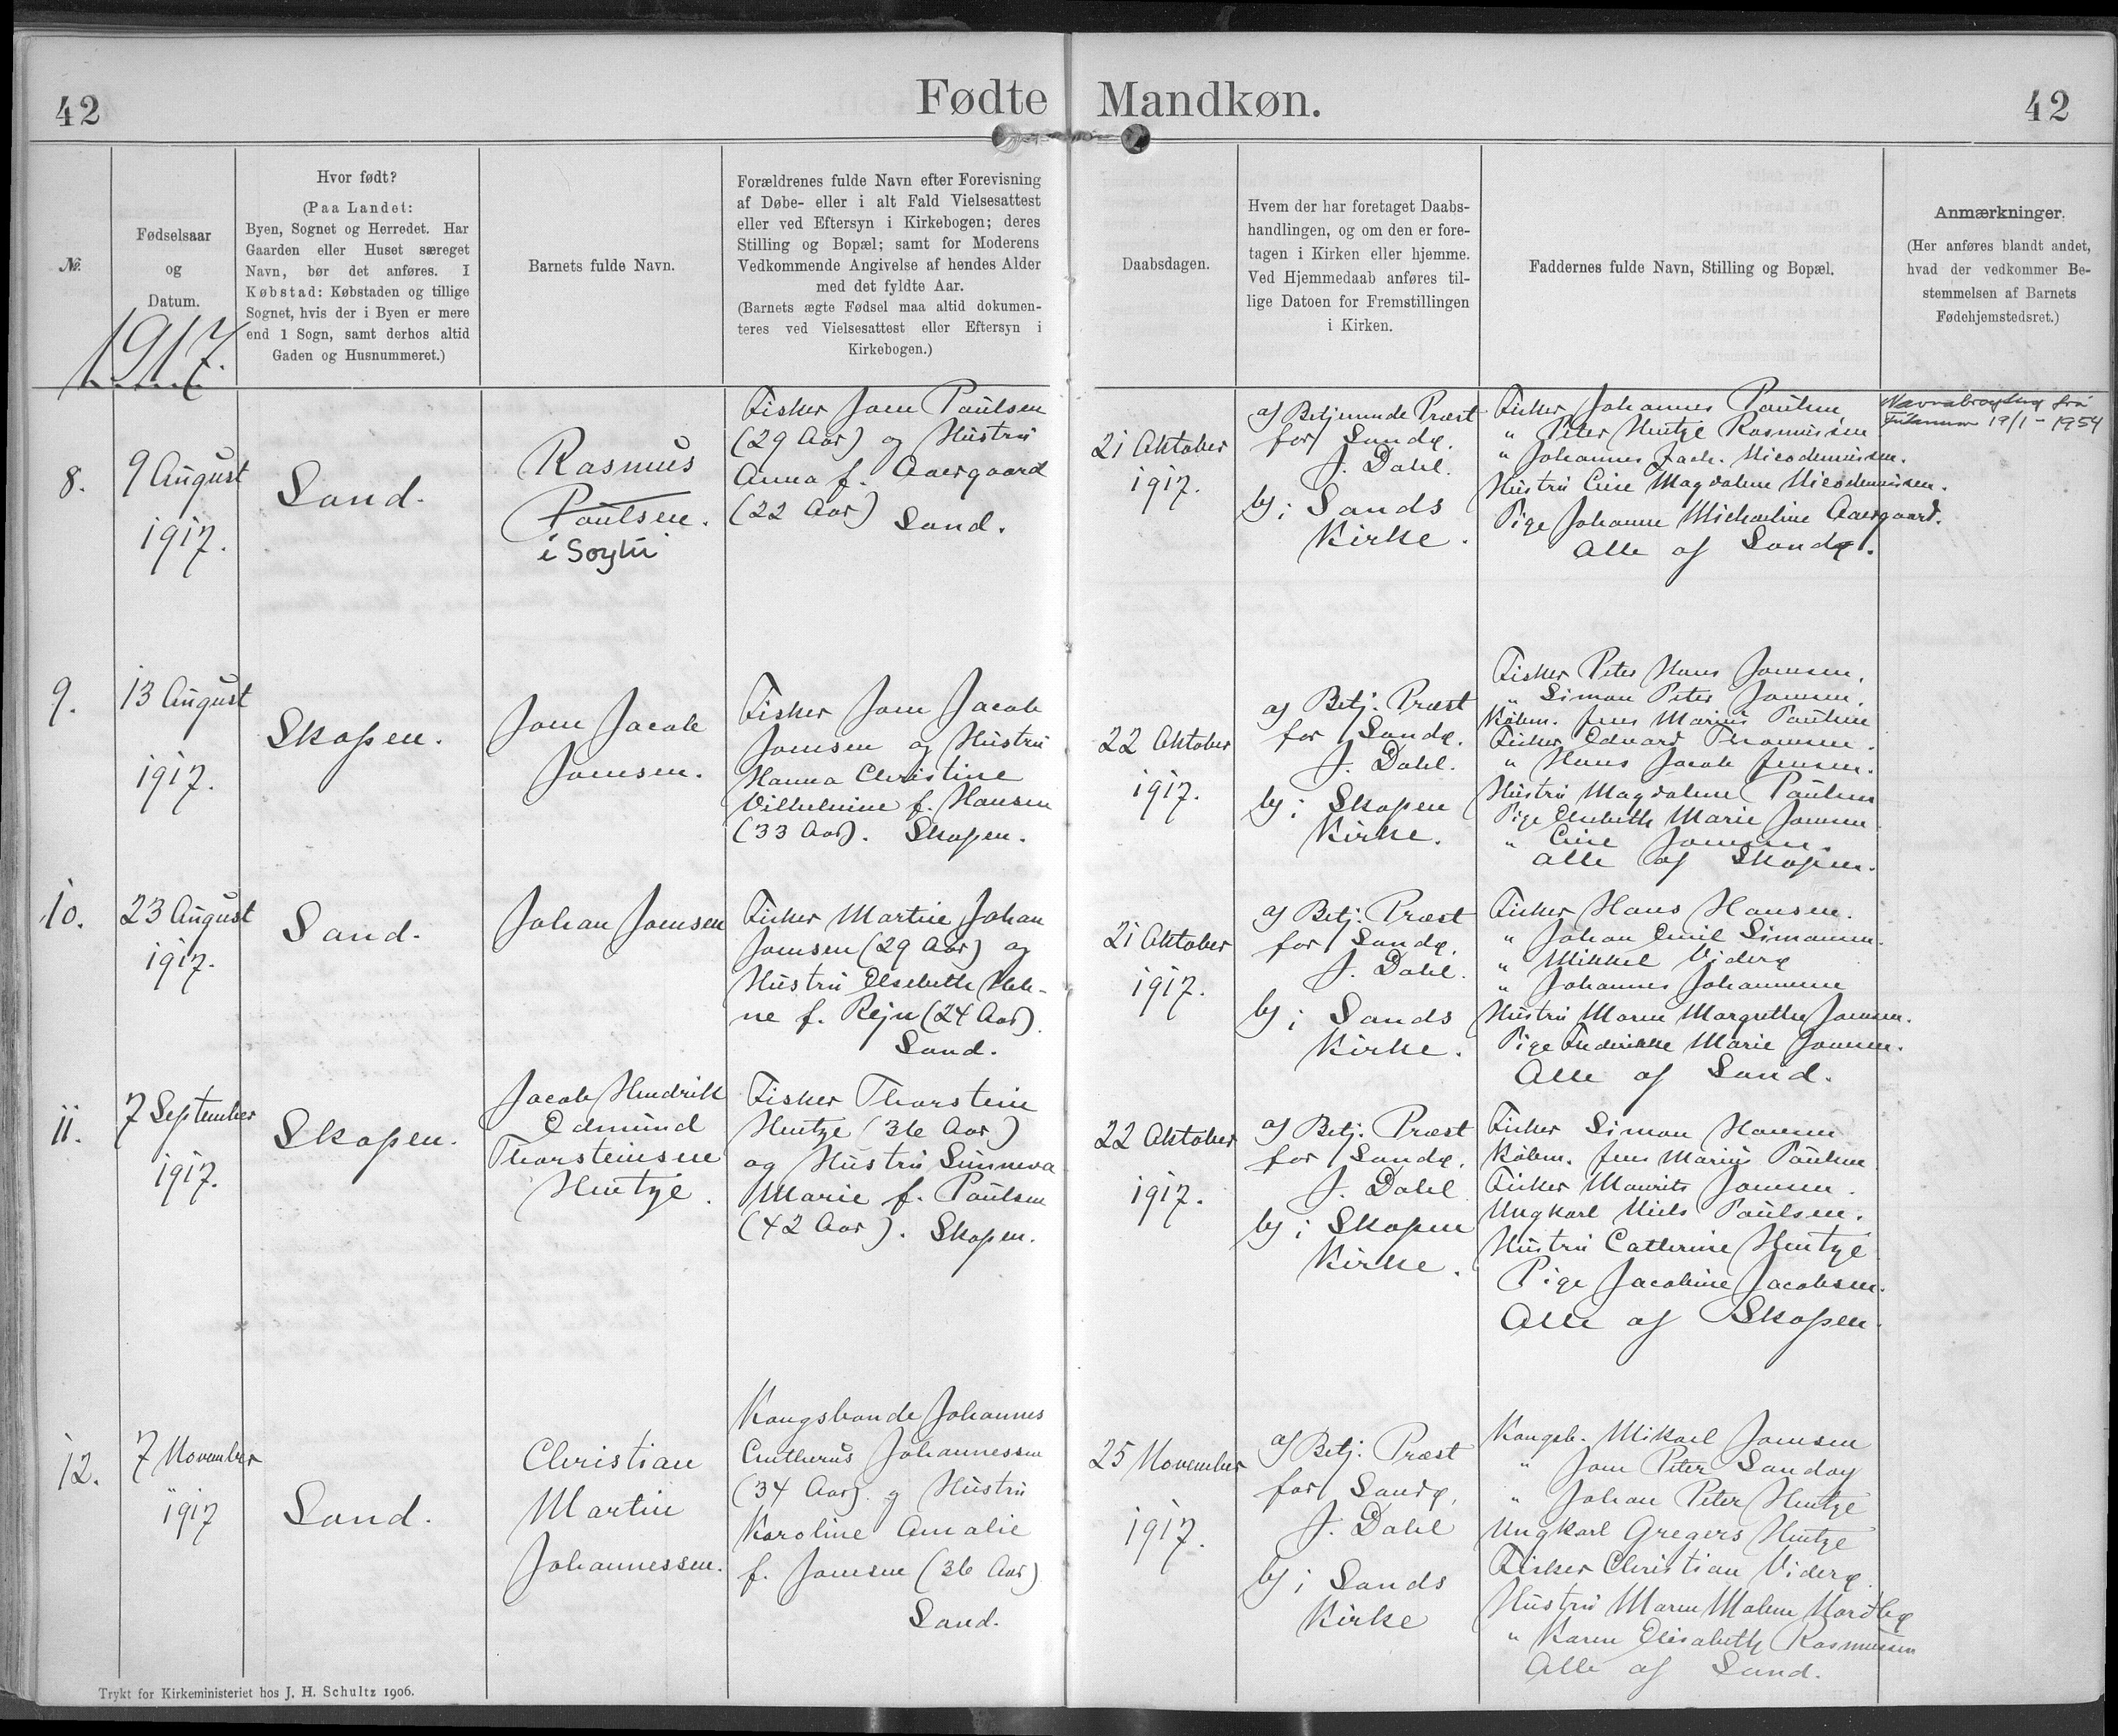 42
Fødte Mandkøn.
42
№
Fødselsaar
og
Datum.
1917.
Hvor født?
(Paa Landet:
Byen, Sognet og Herredet. Har
Gaarden eller Huset særeget
Navn, bør det anføres. I
Købstad: Købstaden og tillige
Sognet, hvis der i Byen er mere
end 1 Sogn, samt derhos altid
Gaden og Husnummeret.)
Barnets fulde Navn.
Forældrenes fulde Navn efter Forevisning
af Døbe- eller i alt Fald Vielsesattest
eller ved Eftersyn i Kirkebogen; deres
Stilling og Bopæl; samt for Moderens
Vedkommende Angivelse af hendes Alder
med det fyldte Aar.
(Barnets ægte Fødsel maa altid dokumen-
teres ved Vielsesattest eller Eftersyn i
Kirkebogen.)
Daabsdagen.
Hvem der har foretaget Daabs-
handlingen, og om den er fore-
tagen i Kirken eller hjemme.
Ved Hjemmedaab anføres til-
lige Datoen for Fremstillingen
i Kirken.
Faddernes fulde Navn, Stilling og Bopæl.
Anmærkninger.
(Her anføres blandt andet,
hvad der vedkommer Be-
stemmelsen af Barnets
Fødehjemstedsret.)
8.
9 August
1917.
Sand.
Rasmus
Poulsen.
i Soylu
Fisker Joen Poulsen
(29 Aar) og Hustru
Anna f. Aaergaard
(22 Aar)
Sand.
21 Oktober
1917.
af Betjenende Præst
for Sandø.
J. Dahl.
b/ i Sands
Kirke.
Fisker Johannes Poulsen
" Peter Hentze Rasmussen
" Johannes Zach. Nicodemussen.
Hustru Cine Magdalene Nicodemussen.
Pige Johanne Michaeline Aaergaard.
Alle af Sandø.
Navnabroyting frá
19/1-1954
9.
13 August
1917.
Skopen.
Joen Jacob
Joensen.
Fisker Joen Jacob
Joensen og Hustru
Hanna Christine
Vilhelmine f. Hansen
(33 Aar). Skopen.
22 Oktober
1917.
af Betj. Præst
for Sandø.
J. Dahl.
b/ i Skopen
Kirke.
Fisker Peter Hans Joensen.
" Simon Peter Joensen.
Købm. Jens Marius Poulsen
Fisker Edvard Thomsen.
" Hans Jacob Jensen.
Hustru Magdalene Poulsen
Pige Elsebeth Marie Joensen
" Cine Joensen.
Alle af Skopen.
10.
23 August
1917.
Sand.
Johan Joensen
Fisker Martin Johan
Joensen (29 Aar) og
Hustru Elsebeth
ne f. Rejn (24 Aar).
Sand.
21 Oktober
1917.
af Betj. Præst
for Sandø.
J. Dahl.
b/ i Sands
Kirke.
Fisker Hans Hansen.
" Johan Emil Simonsen.
" Mikkel Viderø
" Johannes Johannesen
Hustru Maren Margrethe Joensen.
Pige Frederikke Marie Joensen.
Alle af Sand.
11.
7 September
1917.
Skopen.
Jacob Hendrik
Edmund
Thorsteinsen
Hentze.
Fisker Thorstein
Hentze (36 Aar)
og Hustru Sunneva
Marie f. Poulsen
(42 Aar). Skopen.
22 Oktober
1917.
af Betj. Præst
for Sandø.
J. Dahl
b/ i Skopen
Kirke.
Fisker Simon Hansen
Købm. Jens Marius Poulsen
Fisker Maurits Joensen.
Ungkarl Niels Poulsen.
Hustru Cathrine Hentze
Pige Jacobine Jacobsen.
Alle af Skopen.
12.
7 November
1917
Sand.
Christian
Martin
Johannessen.
Kongsbonde Johannes
Johannessen
(34 Aar) og Hustru
Karoline Amalie
f. Joensen (36 Aar)
Sand.
25 November
1917.
af Betj. Præst
for Sandø.
J. Dahl
b/ i Sands
Kirke
Kongsb. Mikael Joensen
" Joen Peter Sandoy
" Johan Peter Hentze
Ungkarl Gregers Hentze
Fisker Christian Viderø.
Hustru Maren Malene Hardbø
" Karen Elisabeth Rasmussen
Alle af Sand.
Trykt for Kirkeministeriet hos J. H. Schultz 1906.